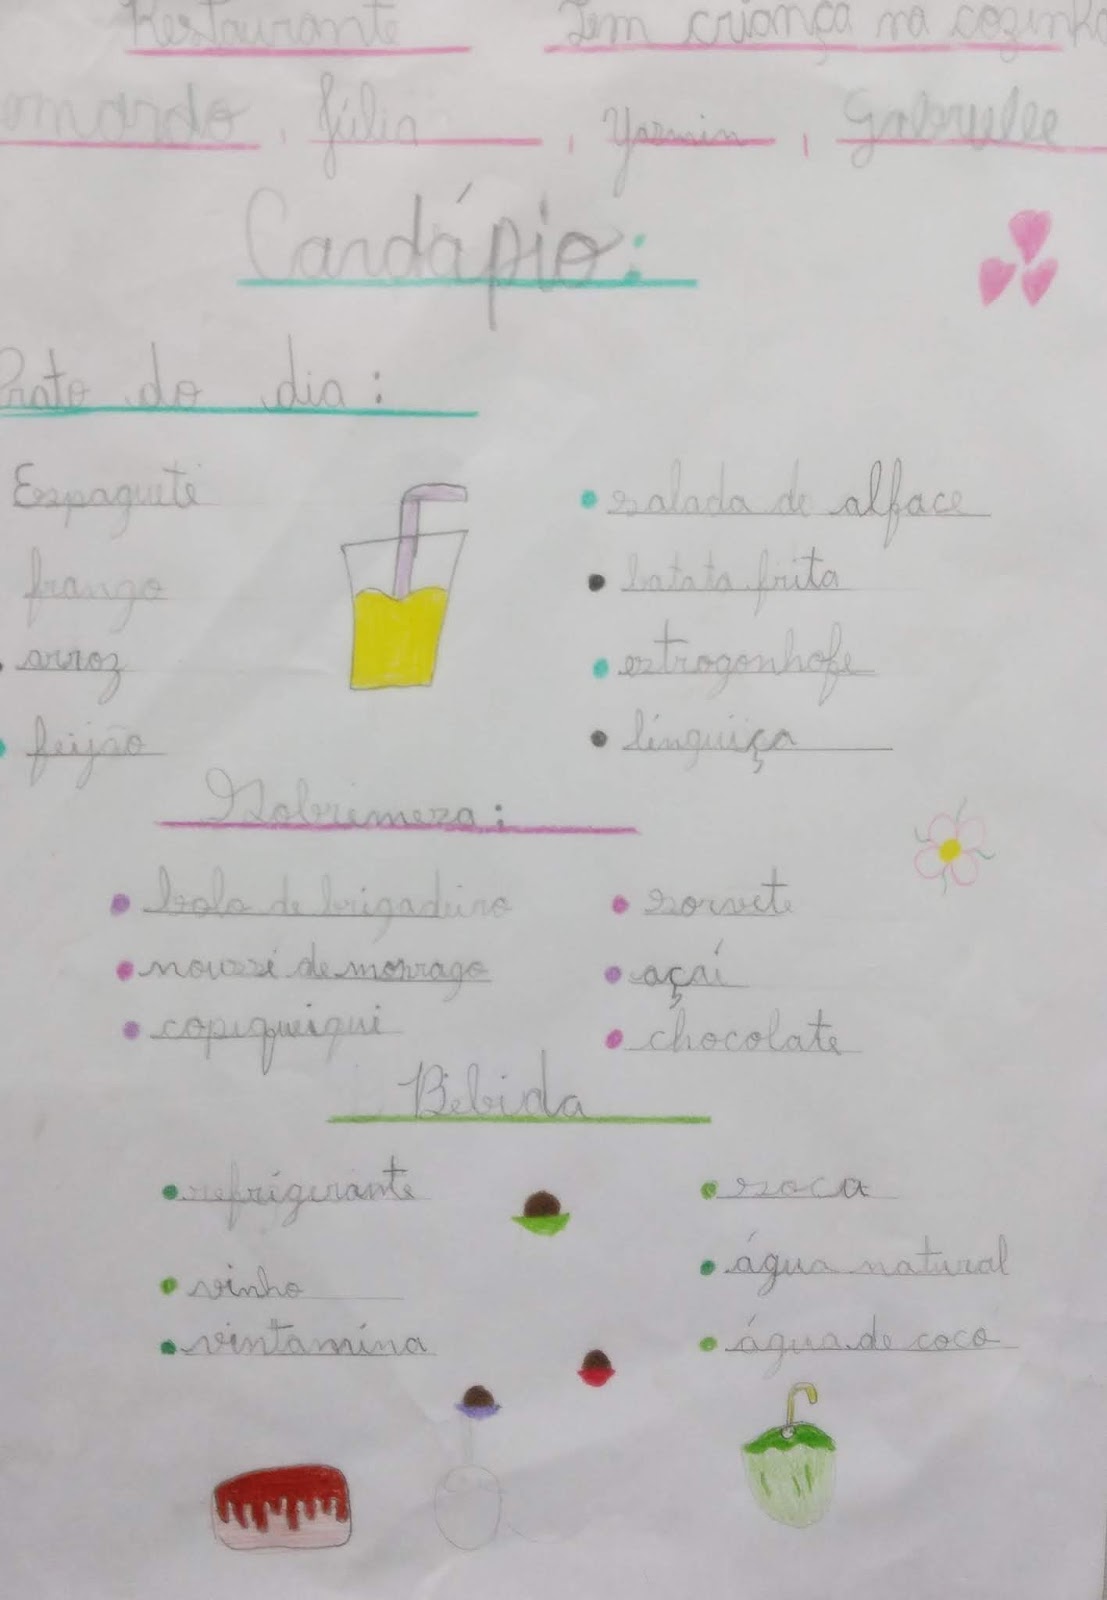 Restaurante Tem criança na cozinha
omardo, Júlia, Yasmin, Gabrielle
Cardápio:
Prato do dia:
Espaguete
frango
arroz
feijão
salada de alface
batata frita
estrogonhofe
linguiça
Sobrimesa:
bolo de brigadeiro
mousse de morrago
copiqueiqui
sorvete
açaí
chocolate
Bebida
refrigerante
vinho
vintamina
soca
água natural
água de coco